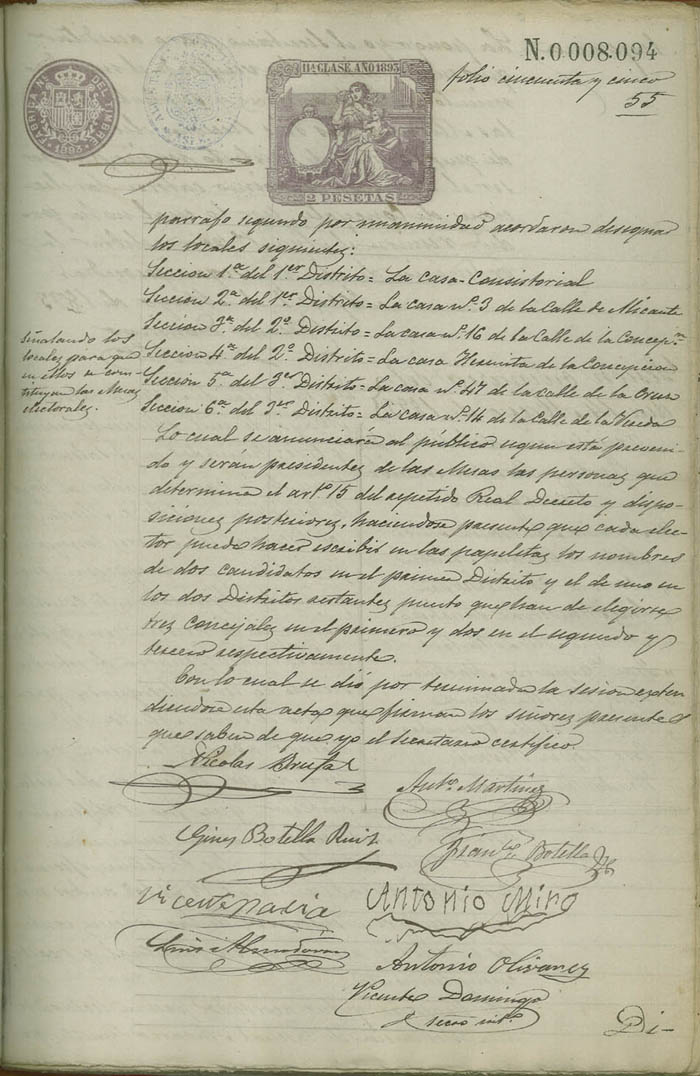 N.0.008.094
folio cincuenta y cinco
55
FÁBRICA NAL DEL TIMBRE
1893
11ª CLASE AÑO 1893
2 PESETAS
parrafo segundo por unanimidad acordaron designar
los locales siguientes:
Seccion 1ª del 1er Distrito = La casa-Consistorial
Seccion 2ª del 1er Distrito = La casa nº 3 de la Calle de Alicante
Seccion 3ª del 2º Distrito = La casa nº 16 de la Calle de la Concepn
Seccion 4ª del 2º Distrito = La casa Hermita de la Concepcion
Seccion 5ª del 3er Distrito = La casa nº 47 de la calle de la Cruz
Seccion 6ª del 3er Distrito = La casa nº 14 de la Calle de la Vereda
señalando los
locales para que
en ellos se cons-
tituyan las Mesas
electorales.
Lo cual se anunciará al público segun está preveni-
do y serán presidentes de las Mesas las personas que
determina el artº 15 del repetido Real Decreto y dispo-
siciones posteriores, haciendose presente que cada elec-
tor puede hacer escribir en las papeletas los nombres
de dos candidatos en el primer Distrito y el de uno en
los dos Distritos restantes puesto que han de elegirse
tres concejales en el primero y dos en el segundo y
tercero respectivamente.
Con lo cual se dió por terminada la sesion exten
diendose esta acta que firman los señores presentes
que saben de que yo el secretario certifico.
Nicolas Brufal
Antº Martinez
Gines Botella Ruiz
Franco Botella
Vicente Macia
Antonio Miro
Luis Almodovar
Antonio Olivares
Vicente Domingo
secrio intº
Di-